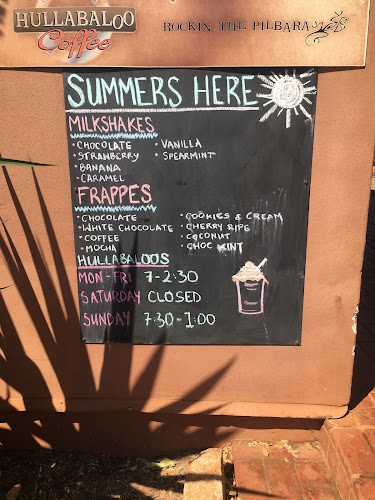 HULLABALOO
Coffee
ROCKIN THE PILBARA
SUMMERS HERE
MILKSHAKES
• CHOCOLATE • VANILLA
• STRAWBERRY • SPEARMINT
• BANANA
• CARAMEL
FRAPPES
• CHOCOLATE • COOKIES & CREAM
• WHITE CHOCOLATE • CHERRY RIPE
• COFFEE • COCONUT
• MOCHA • CHOC MINT
HULLABALOOS
MON-FRI 7-2:30
SATURDAY CLOSED
SUNDAY 7:30-1:00